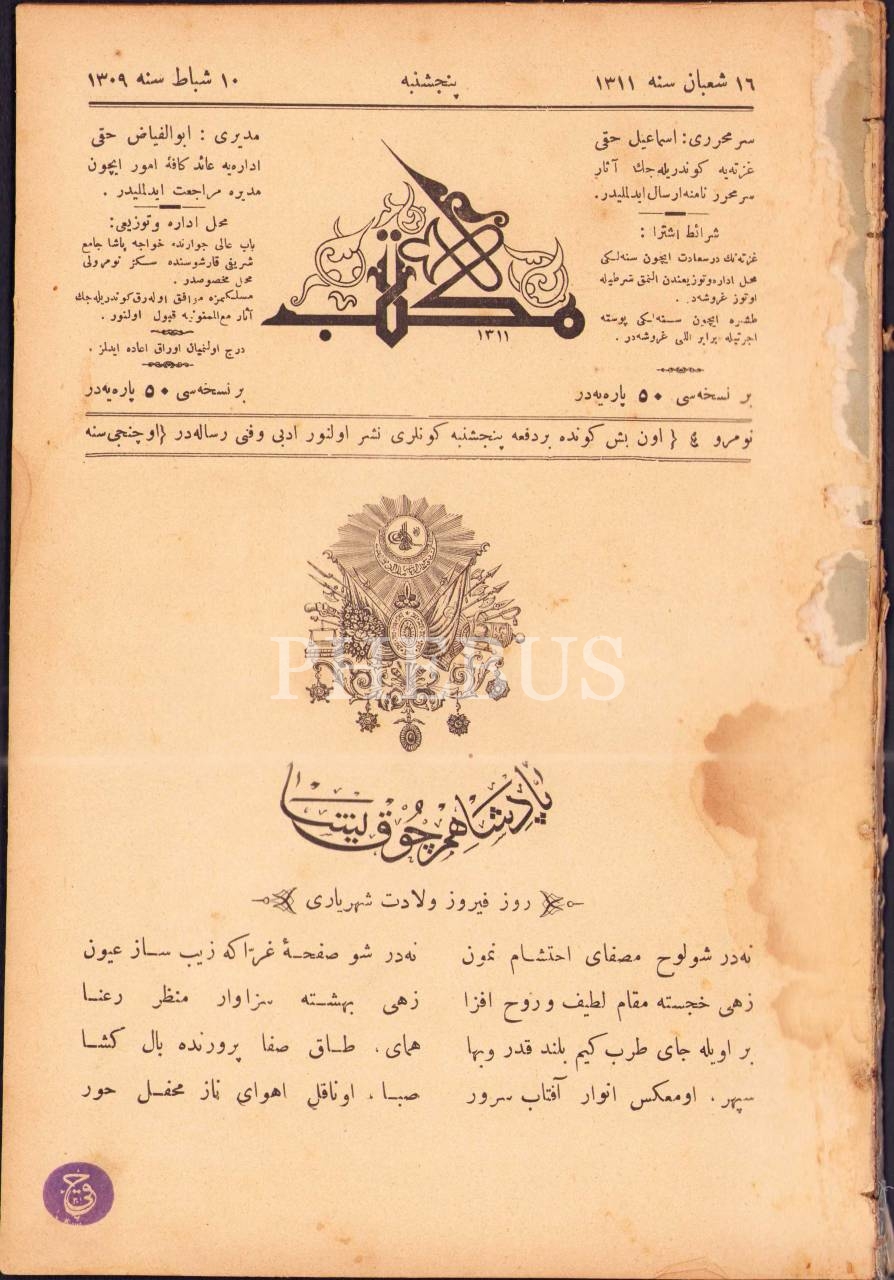 ١٦ شعبان سنه ١٣١١
پنجشنبه
١٠ شباط سنه ١٣٠٩
سر محرری : اسماعیل حقی
غزته‌یه کوندریله‌جك آثار
سر محرر نامنه ارسال ایدلملیدر.
شرائط اشترا :
غزته‌نك درسعادت ایچون سنه‌لکی
محل اداره وتوزیعندن النمق شرطیله
اوتوز غروشدر .
طشره ایچون سنه‌لکی پوسته
اجرتیله برابر اللی غروشدر .
بر نسخه‌سی ٥٠ پاره‌یه‌در
مکتب
١٣١١
مدیری : ابوالفیاض حقی
اداره‌یه عائد کافۀ امور ایچون
مدیره مراجعت ایدلملیدر .
محل اداره وتوزیعی :
باب عالی جوارنده خواجه پاشا جامع
شریفی قارشوسنده سکز نومرولی
محل مخصوصدر .
مسلکمزه موافق اوله‌رق کوندریله‌جك
آثار مع‌الممنونیه قبول اولنور .
درج اولنمیان اوراق اعاده ایدلمز .
بر نسخه‌سی ٥٠ پاره‌یه‌در
نومرو ٤ { اون بش کونده بردفعه پنجشنبه کونلری نشر اولنور ادبی وفنی رساله‌در } اوچنجی سنه
PHEBUS
پادشاهم چوق یشا
روز فیروز ولادت شهریاری
نه‌در شولوح مصفای احتشام نمون
نه‌در شو صفحۀ غرّا که زیب ساز عیون
زهی خجسته مقام لطیف و روح افزا
زهی بهشته سزاوار منظر رعنا
بر اویله جای طرب کیم بلند قدر وبها
همای، طاق صفا پرورنده بال کشا
سپهر، اومعکس انوار آفتاب سرور
صبا، اوناقل اهوای ناز محفل حور